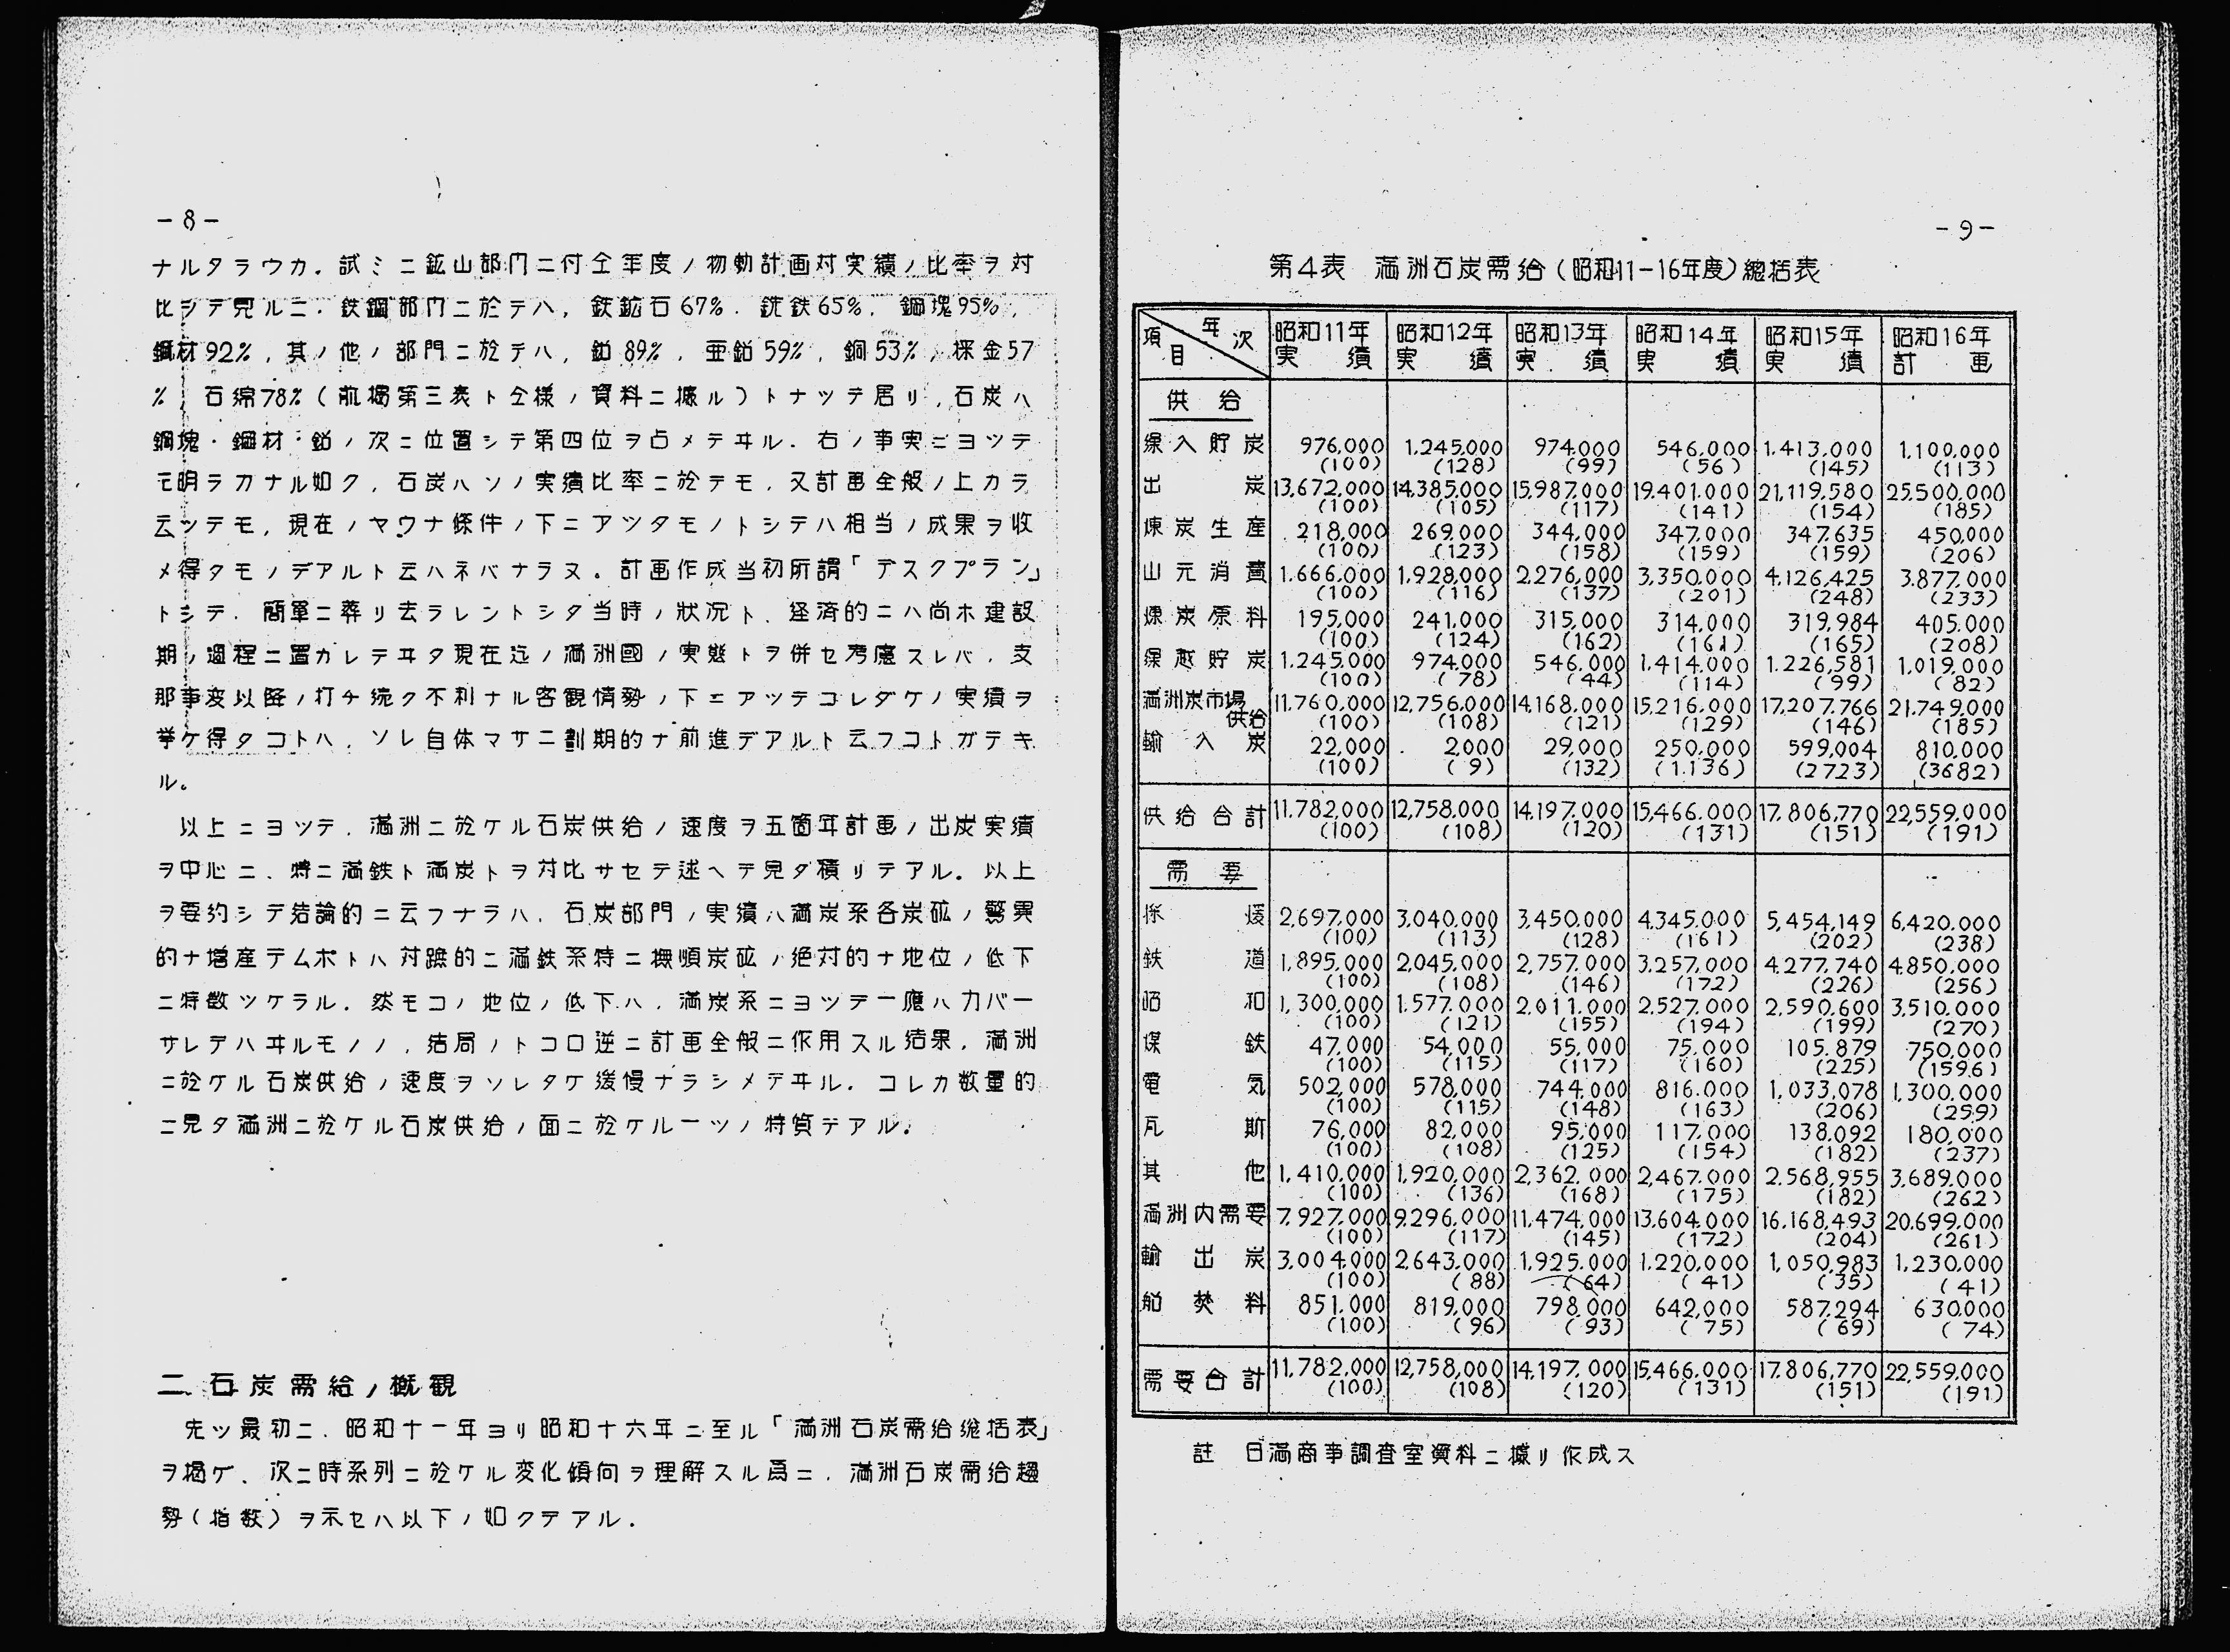 -8-
ナルタラウカ. 試ミニ鉱山部門ニ付仝年度ノ物動計画対実績ノ比率ヲ対
比シテ見ルニ. 鉄鋼部門ニ於テハ, 鉄鉱石67%. 銑鉄65%. 鋼塊95%,
鋼材92%, 其ノ他ノ部門ニ於テハ, 鉛89%, 亜鉛59%, 銅53%, 採金57
%, 石綿78%(前掲第三表ト仝様ノ資料ニ據ル)トナツテ居リ, 石炭ハ
鋼塊・鋼材・鉛ノ次ニ位置シテ第四位ヲ占メテヰル. 右ノ事実ニヨツテ
モ明ラカナル如ク, 石炭ハソノ実績比率ニ於テモ, 又計画全般ノ上カラ
云ツテモ, 現在ノヤウナ條件ノ下ニアツタモノトシテハ相当ノ成果ヲ收
メ得タモノデアルト云ハネバナラヌ。計画作成当初所謂「デスクプラン」
トシテ. 簡單ニ葬リ去ラレントシタ当時ノ狀況ト, 経済的ニハ尚ホ建設
期ノ過程ニ置カレテヰタ現在迄ノ満洲國ノ実態トヲ併セ考慮スレバ, 支
那事変以降ノ打チ続ク不利ナル客観情勢ノ下ニアツテコレダケノ実績ヲ
挙ケ得タコトハ, ソレ自体マサニ劃期的ナ前進デアルト云フコトガテキ
ル。
以上ニヨツテ, 満洲ニ於ケル石炭供給ノ速度ヲ五箇年計画ノ出炭実績
ヲ中心ニ, 特ニ満鉄ト満炭トヲ対比サセテ述ヘテ見タ積リテアル. 以上
ヲ要約シテ結論的ニ云フナラハ, 石炭部門ノ実績ハ満炭系各炭砿ノ驚異
的ナ増産テムポトハ対蹠的ニ満鉄系特ニ撫順炭砿ノ絶対的ナ地位ノ低下
ニ特徴ツケラル. 然モコノ地位ノ低下ハ, 満炭系ニヨツテ一應ハカバー
サレテハヰルモノノ, 結局ノトコロ逆ニ計画全般ニ作用スル結果, 満洲
ニ於ケル石炭供給ノ速度ヲソレタケ緩慢ナラシメテヰル. コレカ数量的
ニ見タ満洲ニ於ケル石炭供給ノ面ニ於ケル一ツノ特質テアル.
二. 石炭需給ノ概観
先ツ最初ニ, 昭和十一年ヨリ昭和十六年ニ至ル「満洲石炭需給総括表」
ヲ掲ゲ, 次ニ時系列ニ於ケル変化傾向ヲ理解スル爲ニ, 満洲石炭需給趨
勢(指数)ヲ示セハ以下ノ如クテアル.
-9-
第4表 満洲石炭需給(昭和11-16年度)總括表
項目 年次 昭和11年実績 昭和12年実績 昭和13年実績 昭和14年実績 昭和15年実績 昭和16年計画
供給
繰入貯炭 976,000 1,245,000 974,000 546,000 1,413,000 1,100,000
(100) (128) (99) (56) (145) (113)
出炭 13,672,000 14,385,000 15,987,000 19,401,000 21,119,580 25,500,000
(100) (105) (117) (141) (154) (185)
煉炭生産 218,000 269,000 344,000 347,000 347,635 450,000
(100) (123) (158) (159) (159) (206)
山元消費 1,666,000 1,928,000 2,276,000 3,350,000 4,126,425 3,877,000
(100) (116) (137) (201) (248) (233)
煉炭原料 195,000 241,000 315,000 314,000 319,984 405,000
(100) (124) (162) (161) (165) (208)
繰越貯炭 1,245,000 974,000 546,000 1,414,000 1,226,581 1,019,000
(100) (78) (44) (114) (99) (82)
満洲炭市場供給 11,760,000 12,756,000 14,168,000 15,216,000 17,207,766 21,749,000
(100) (108) (121) (129) (146) (185)
輸入炭 22,000 2,000 29,000 250,000 599,004 810,000
(100) (9) (132) (1.136) (2723) (3682)
供給合計 11,782,000 12,758,000 14,197,000 15,466,000 17,806,770 22,559,000
(100) (108) (120) (131) (151) (191)
需要
採煖 2,697,000 3,040,000 3,450,000 4,345,000 5,454,149 6,420,000
(100) (113) (128) (161) (202) (238)
鉄道 1,895,000 2,045,000 2,757,000 3,257,000 4,277,740 4,850,000
(100) (108) (146) (172) (226) (256)
昭和 1,300,000 1,577,000 2,011,000 2,527,000 2,590,600 3,510,000
(100) (121) (155) (194) (199) (270)
煤鉄 47,000 54,000 55,000 75,000 105,879 750,000
(100) (115) (117) (160) (225) (1596)
電気 502,000 578,000 744,000 816,000 1,033,078 1,300,000
(100) (115) (148) (163) (206) (259)
瓦斯 76,000 82,000 95,000 117,000 138,092 180,000
(100) (108) (125) (154) (182) (237)
其他 1,410,000 1,920,000 2,362,000 2,467,000 2,568,955 3,689,000
(100) (136) (168) (175) (182) (262)
満洲内需要 7,927,000 9,296,000 11,474,000 13,604,000 16,168,493 20,699,000
(100) (117) (145) (172) (204) (261)
輸出炭 3,004,000 2,643,000 1,925,000 1,220,000 1,050,983 1,230,000
(100) (88) (64) (41) (35) (41)
舶焚料 851,000 819,000 798,000 642,000 587,294 630,000
(100) (96) (93) (75) (69) (74)
需要合計 11,782,000 12,758,000 14,197,000 15,466,000 17,806,770 22,559,000
(100) (108) (120) (131) (151) (191)
註 日満商事調査室資料ニ據リ作成ス